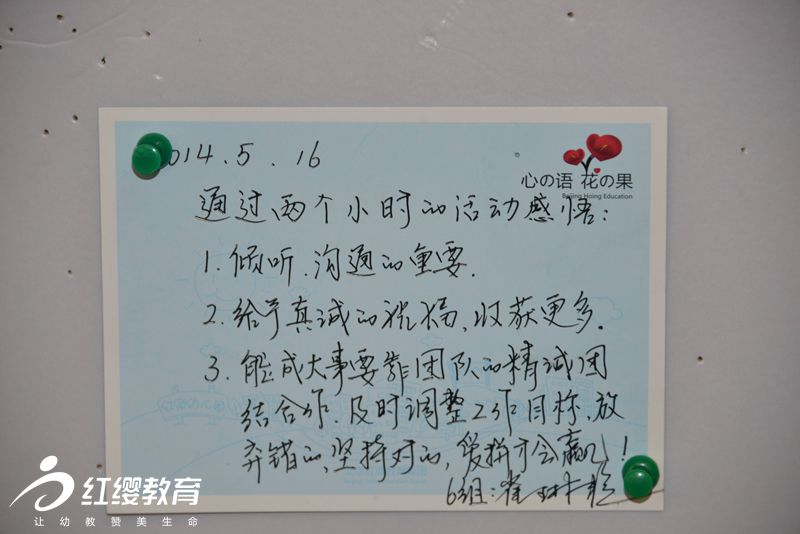 2014.5.16
心の语 花の果
Beijing Hoing Education
通过两个小时的活动感悟:
1. 倾听、沟通的重要.
2. 给予真诚的祝福、收获更多.
3. 能成大事要靠团队的精诚团
结合作、及时调整工作目标、放
弃错的、坚持对的, 爱拼才会赢!
6组:崔
红缨教育
让幼教赞美生命